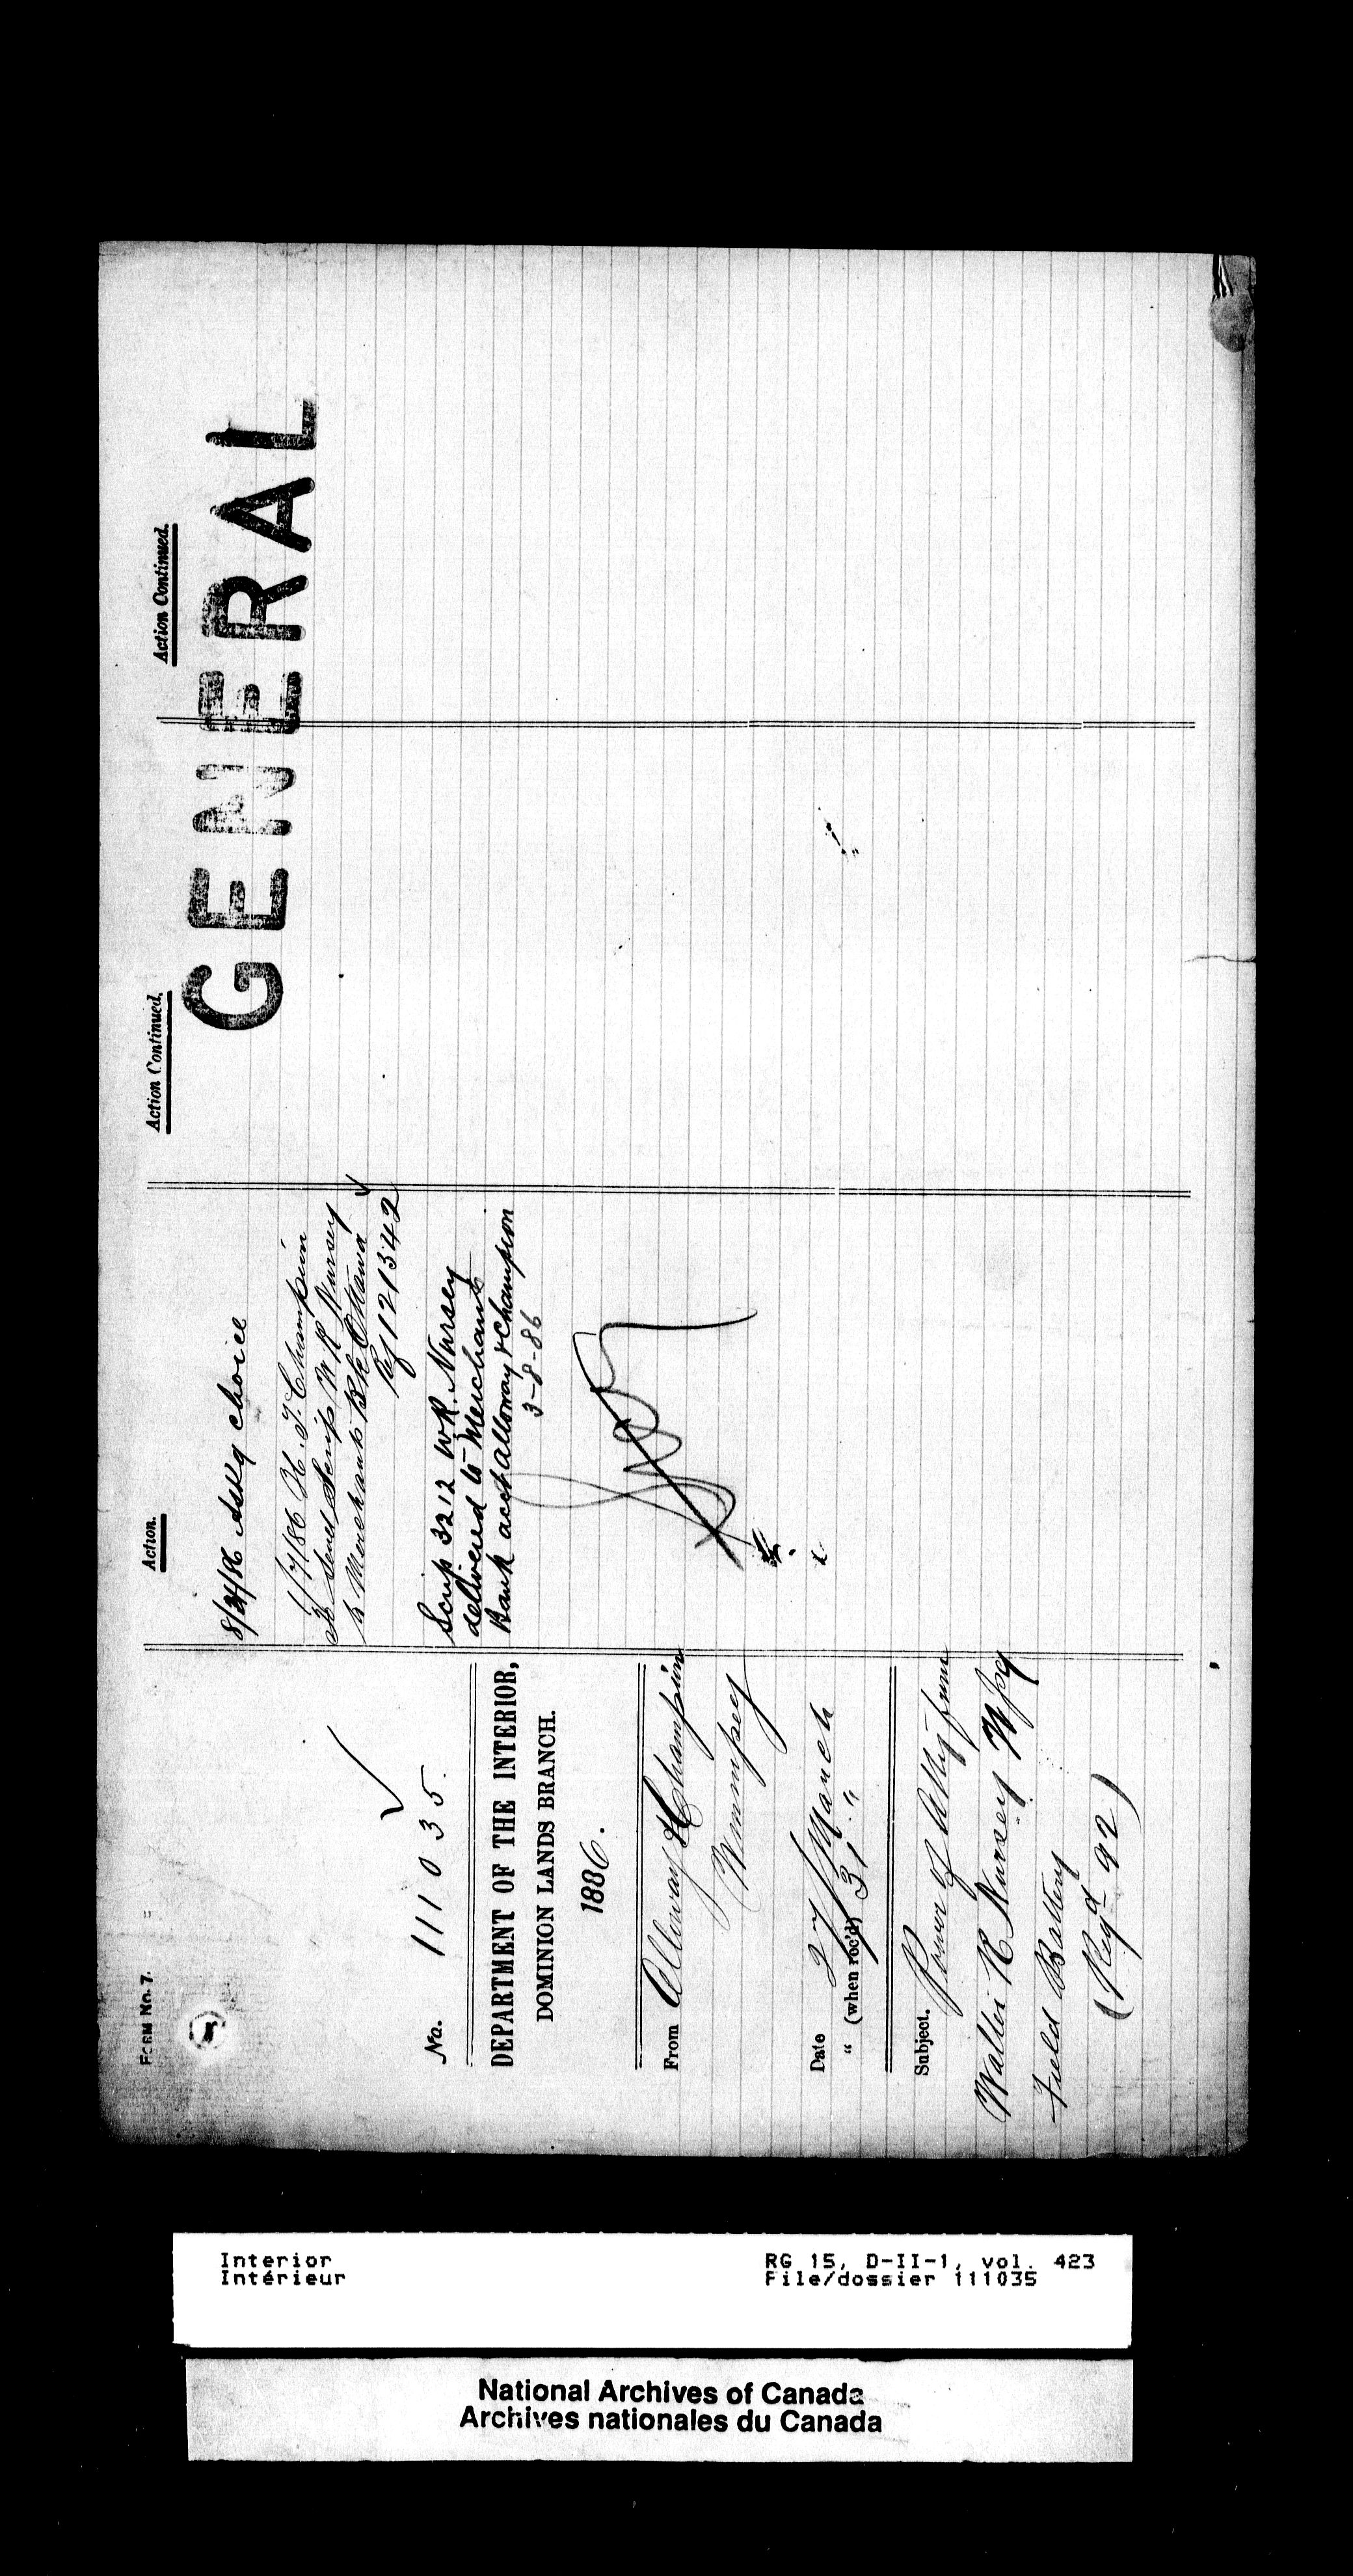 FORM No. 7.
No. 111035.
DEPARTMENT OF THE INTERIOR,
DOMINION LANDS BRANCH.
1886.
From Alloway & Champion
Winnipeg
Date 27 March
" (when rec'd) 31 "
Subject. Power of Atty from
Walter R Nursey Wpg
Field Battery
(Regd 92)
Action.
8/4/86 Askg choice
1/7/86 H. T. Champion
to send Scrip W R Nursey
to Merchants Bk Ottawa
Ref 121342
Scrip 3212 W.R. Nursey
delivered to Merchants
Bank acct Alloway & Champion
3-8-86
Action Continued.
Action Continued.
GENERAL
Interior
Intérieur
RG 15, D-II-1, vol. 423
File/dossier 111035
National Archives of Canada
Archives nationales du Canada